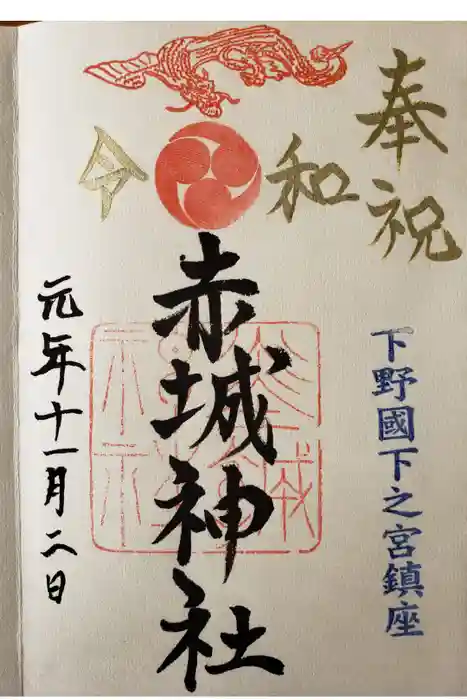 奉祝
令和
下野國下之宮鎮座
赤城神社
元年十一月二日